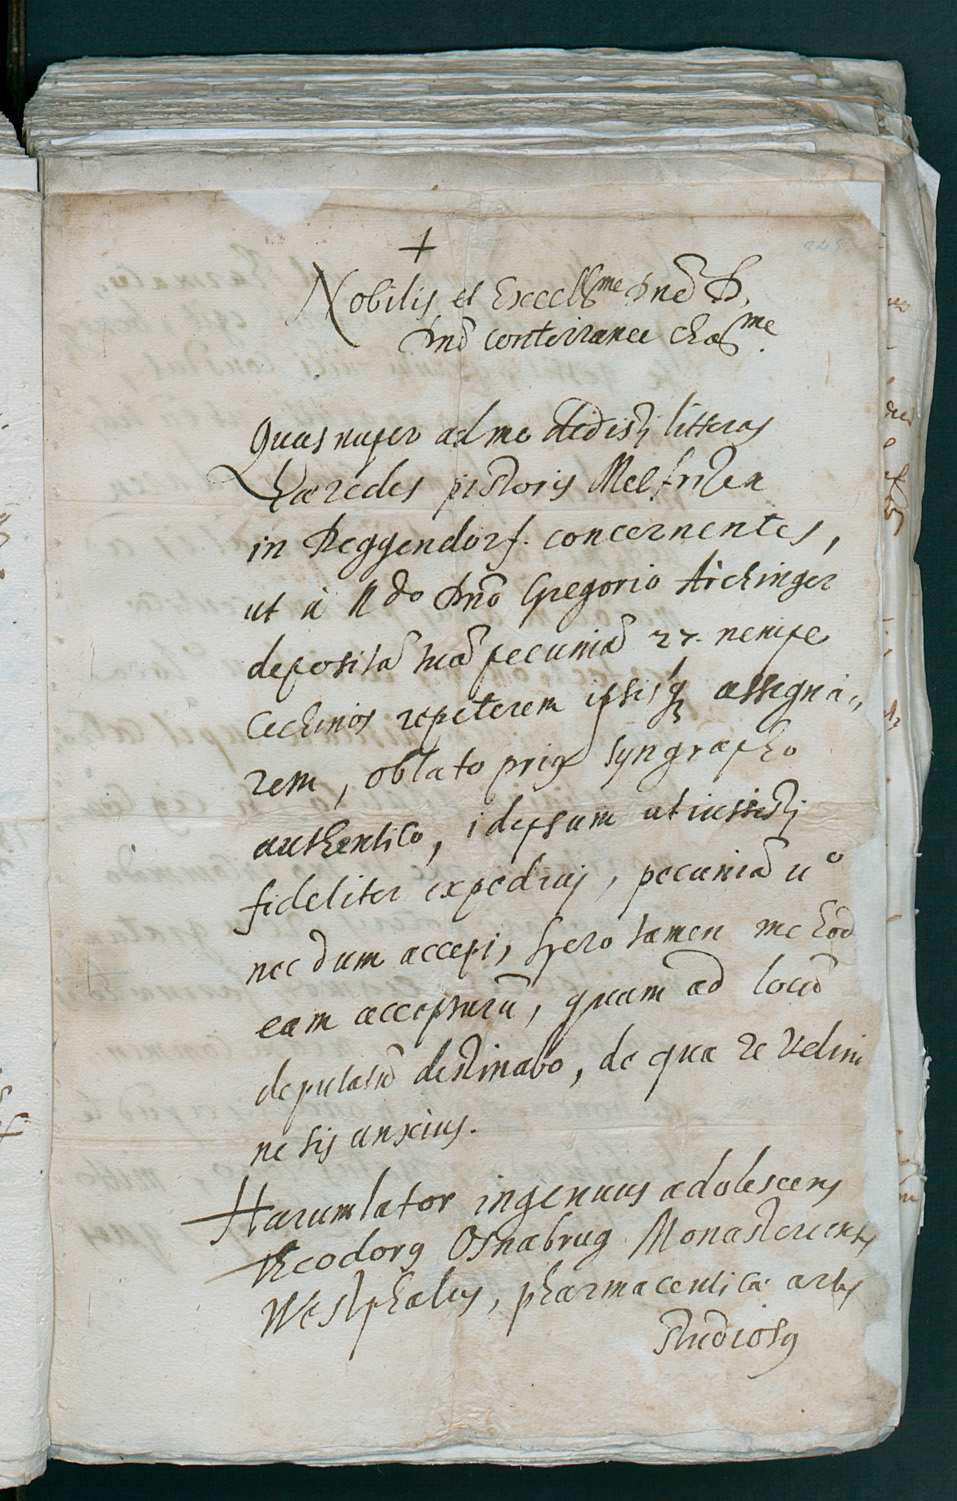 +
Nobilis et Excell.me Dne D.
Dne conterranee chariss.me
Quas nuper ad me dedisti litteras
hæredes pistoris Melfriten
in Deggendorf concernentes,
ut à R.do Dno Gregorio Aichinger
depositā suā pecuniā 27. nempe
cechinos repeterem ipsisq; assigna-
rem, oblato prius syngrapho
authentico, idipsum ut iussisti
fideliter expedivi, pecuniā v.o
necdum accepi, spero tamen me hod
eam accepturū, quam ad locū
deputatū destinabo, de qua re velim
ne sis anxius.
Harum lator ingenuus adolescens
Theodorus Osnabrug Monasteriensis
Westphalus, pharmaceuticæ artis
studiosus